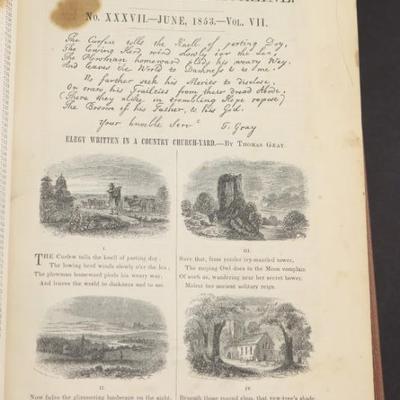 No. XXXVII.—JUNE, 1853.—Vol. VII.
The Curfew tolls the Knell of parting Day,
The lowing Herd wind slowly o'er the Lea,
The Plowman homeward plods his weary Way,
And leaves the World to Darkness & to me.
No farther seek his Merits to disclose,
Or draw his Frailties from their dread Abode,
(There they alike in trembling Hope repose)
The Bosom of his Father, & his God.
Your humble Servt T. Gray
ELEGY WRITTEN IN A COUNTRY CHURCH-YARD.—By Thomas Gray.
I.
The Curfew tolls the knell of parting day,
The lowing herd winds slowly o'er the lea;
The plowman homeward plods his weary way,
And leaves the world to darkness and to me.
II.
Now fades the glimmering landscape on the sight,
III.
Save that, from yonder ivy-mantled tower,
The moping Owl does to the Moon complain
Of such as, wandering near her secret bower,
Molest her ancient solitary reign.
IV.
Beneath those rugged elms, that yew-tree's shade